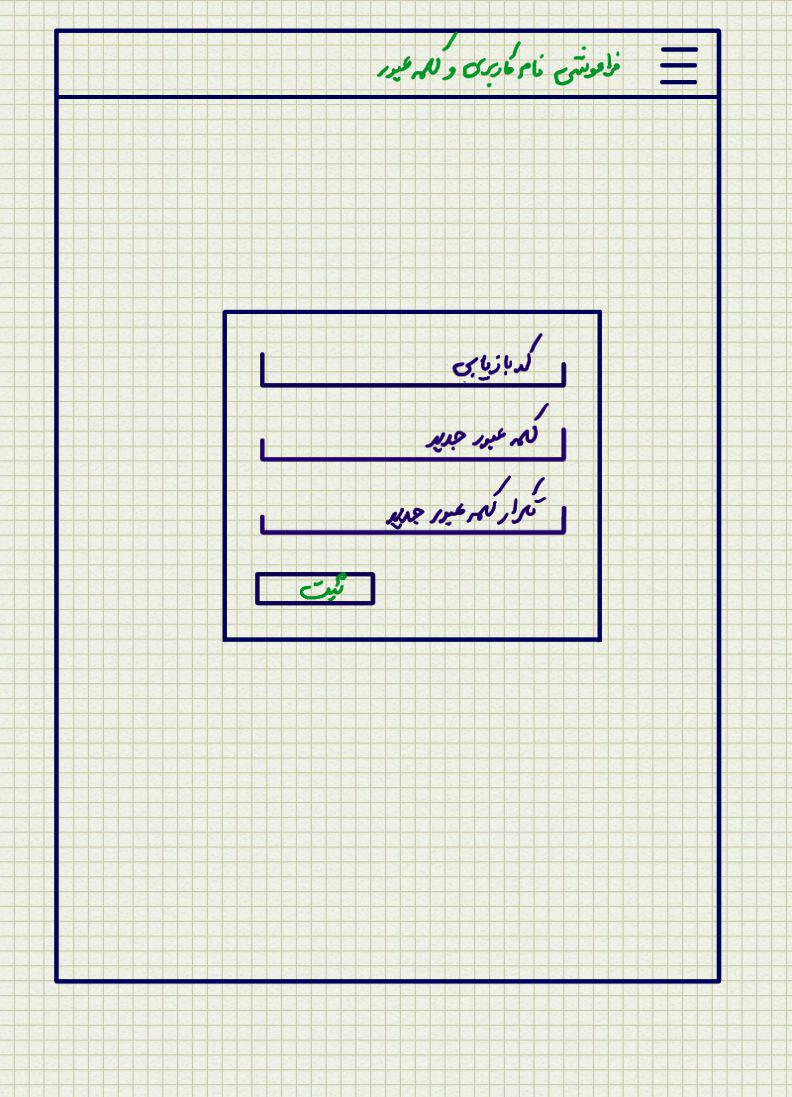 فراموشی نام کاربری و کلمه عبور
کد بازیابی
کلمه عبور جدید
تکرار کلمه عبور جدید
ثبت